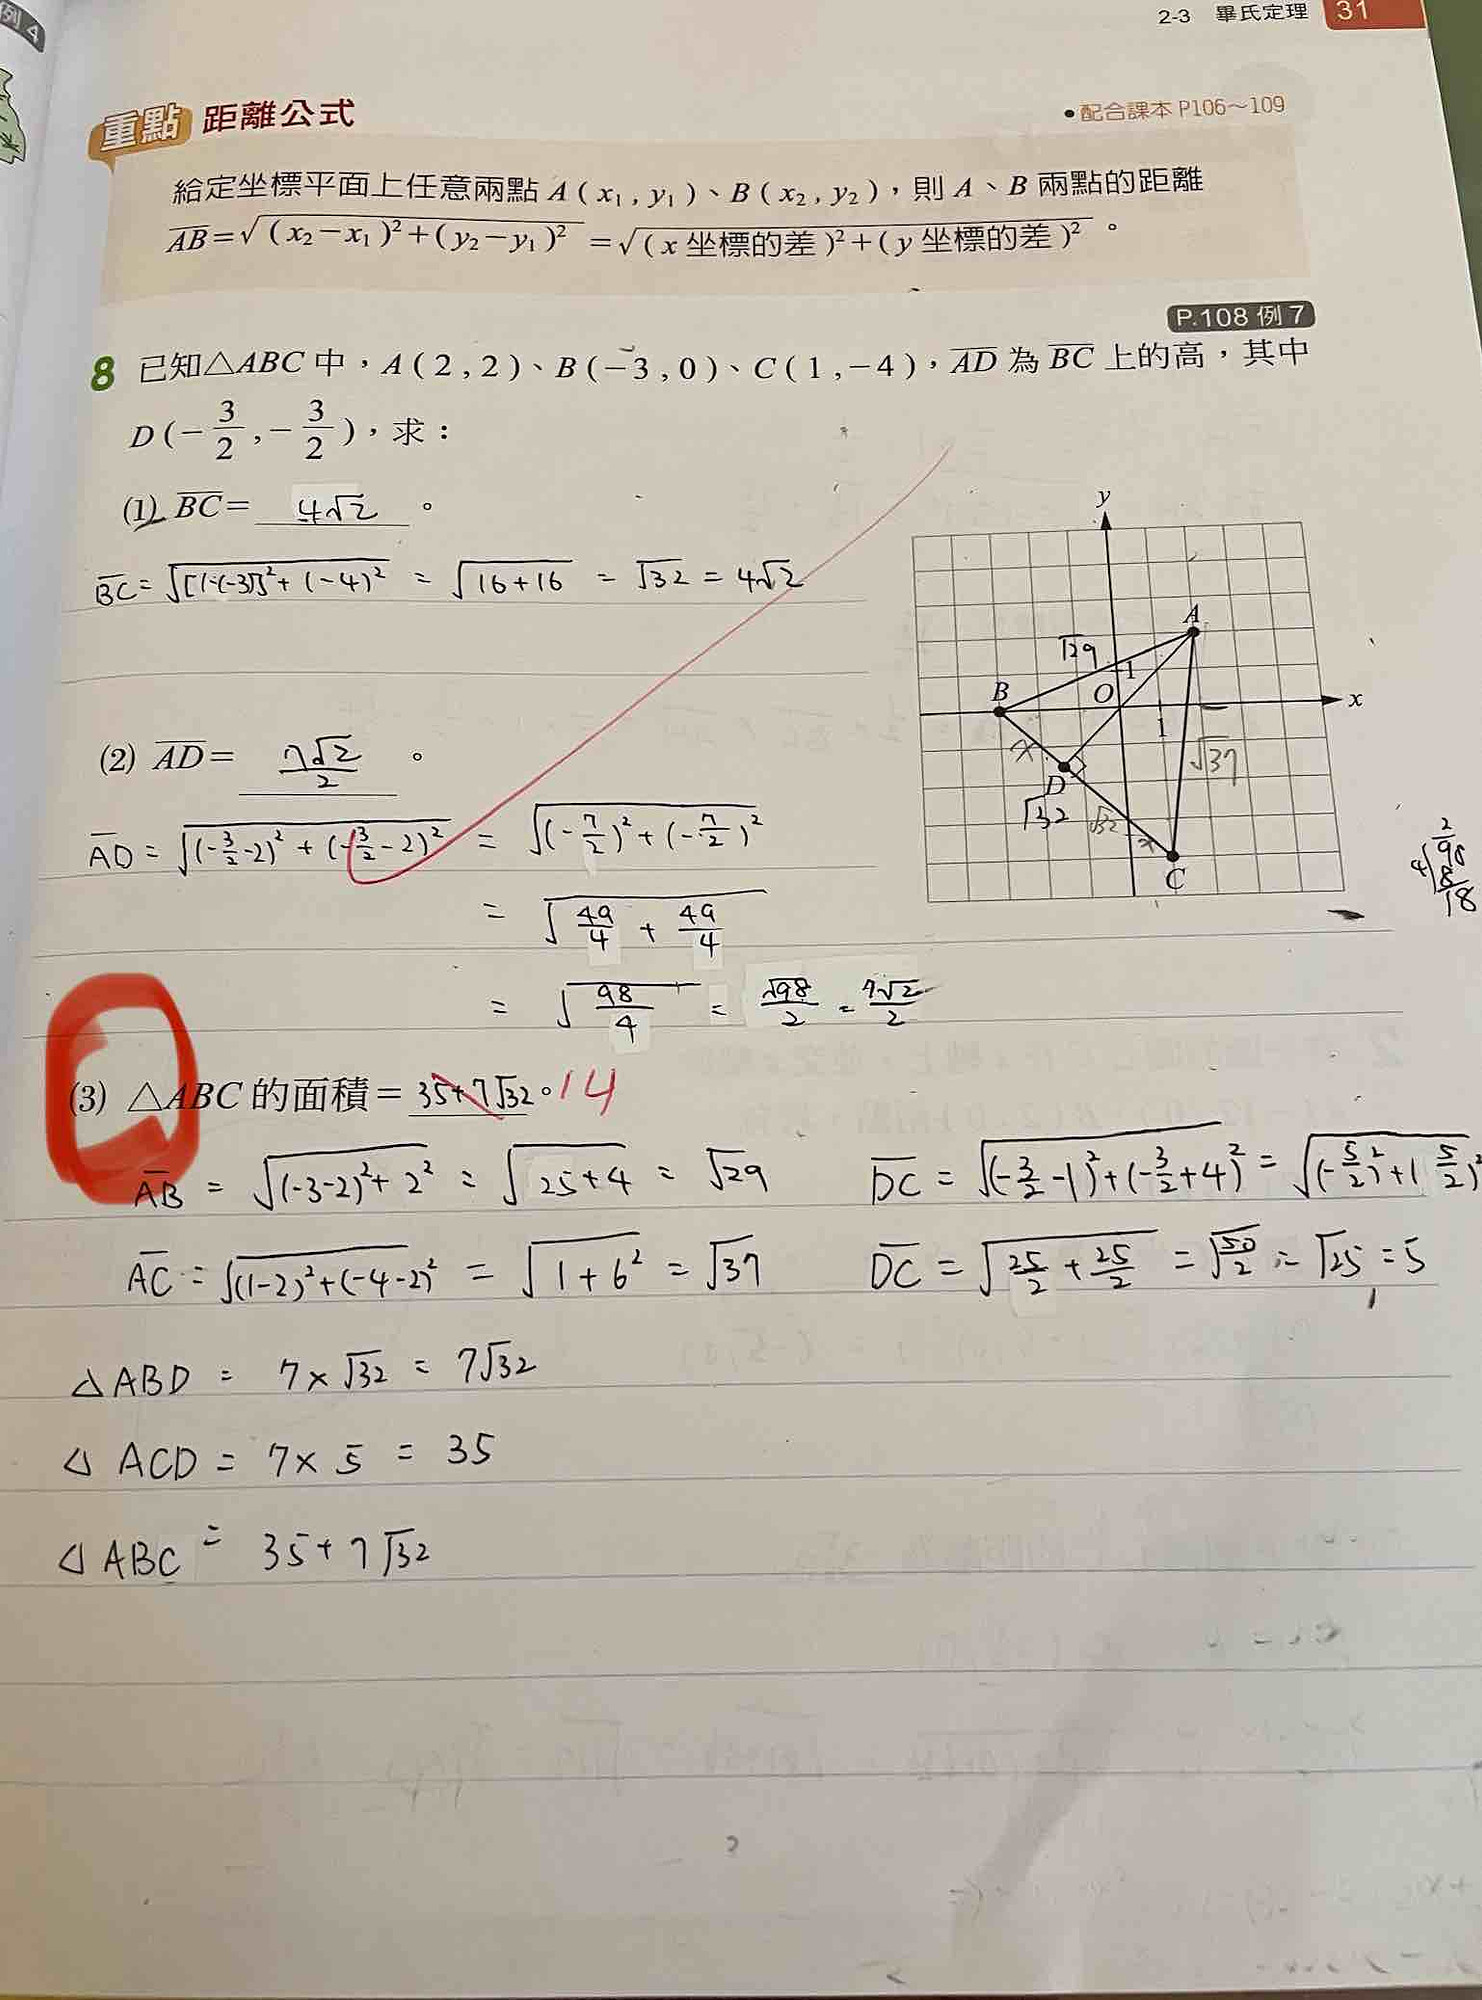 例 4
2-3 畢氏定理 31
重點 距離公式
•配合課本 P106～109
給定坐標平面上任意兩點 A ( x₁ , y₁ )、B ( x₂ , y₂ )，則 A、B 兩點的距離
AB=√( x₂−x₁ )²+( y₂−y₁ )² =√( x 坐標的差 )²+( y 坐標的差 )² 。
P.108 例 7
8 已知△ABC 中，A ( 2 , 2 )、B ( −3 , 0 )、C ( 1 , −4 )，AD 為 BC 上的高，其中
D ( −3/2 , −3/2 )，求：
(1) BC= 4√2 。
BC = √[1-(-3)]²+(-4)² = √16+16 = √32 = 4√2
(2) AD= 7√2/2 。
AD = √(-3/2-2)²+(-3/2-2)² = √(-7/2)²+(-7/2)²
= √49/4 + 49/4
= √98/4 = √98/2 = 7√2/2
y
A
√29
1
B
O
x
1
x
D
√37
√32
√32
x
C
2
4√98
8
18
(3) △ABC 的面積= 35+7√32 。14
AB = √(-3-2)²+2² = √25+4 = √29
DC = √(-3/2-1)²+(-3/2+4)² = √(-5/2)²+(5/2)²
AC = √(1-2)²+(-4-2)² = √1+6² = √37
DC = √25/2+25/2 = √50/2 = √25 = 5
△ABD = 7×√32 = 7√32
△ACD = 7×5 = 35
△ABC = 35+7√32